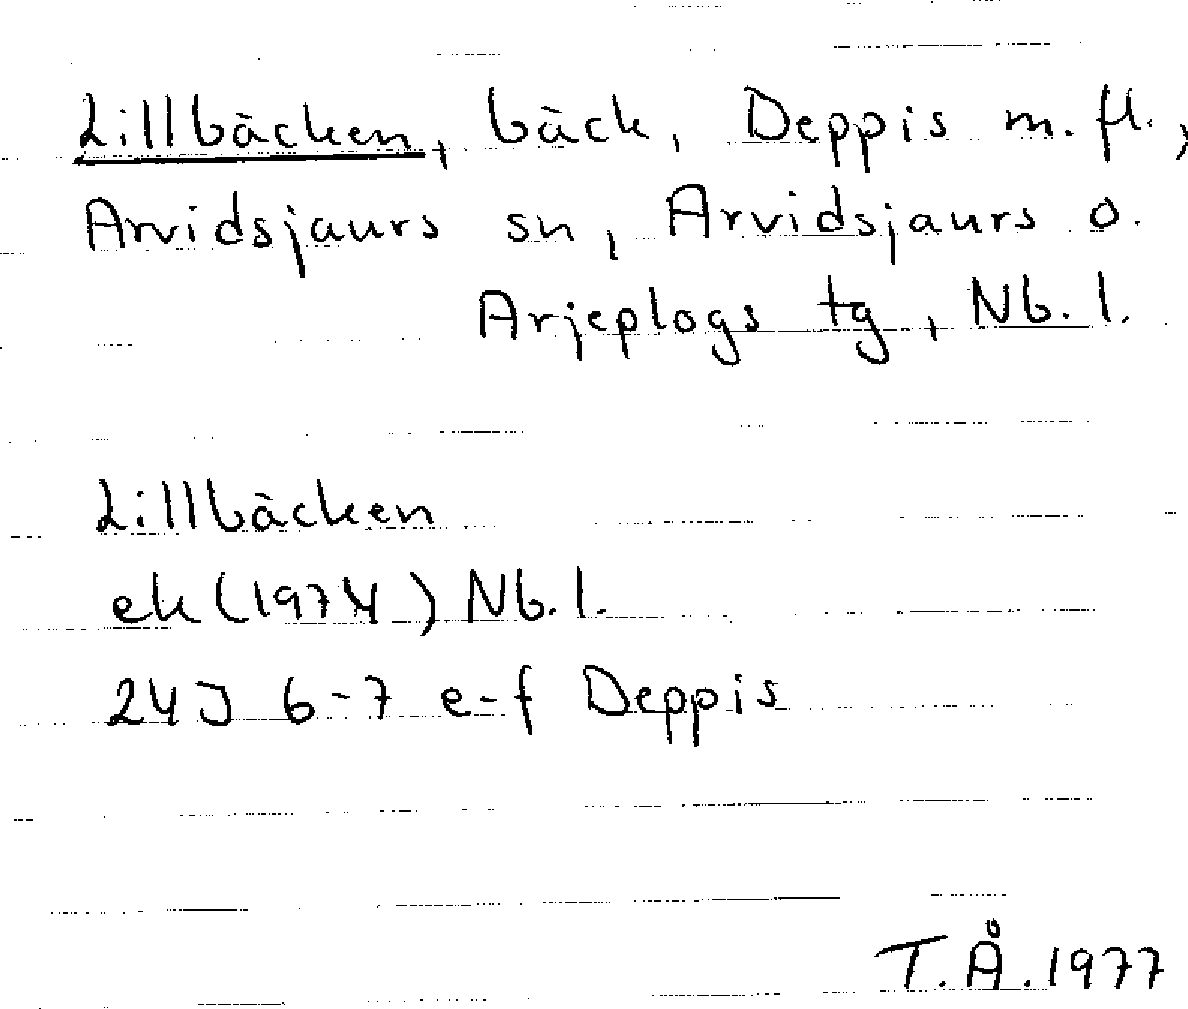 Lillbäcken, bäck, Deppis m. fl.,
Arvidsjaurs sn, Arvidsjaurs o.
Arjeplogs tg, Nb. l.
Lillbäcken
ek (1974) Nb. l.
24J 6-7 e-f Deppis
T. Å. 1977